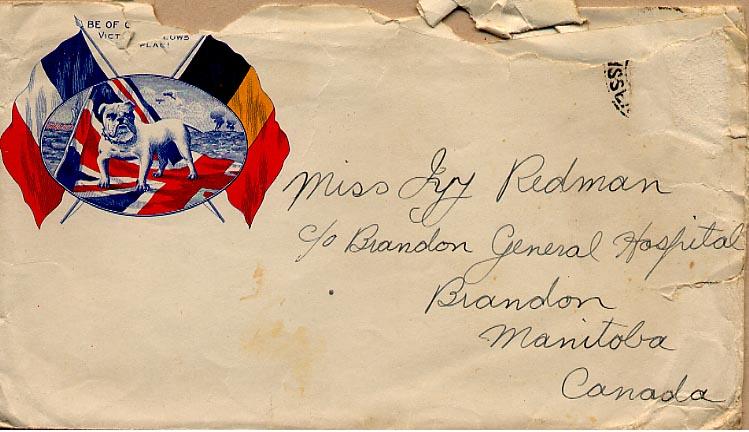 BE OF
VICT
FLAG!
Miss Ivy Redman
c/o Brandon General Hospital
Brandon
Manitoba
Canada